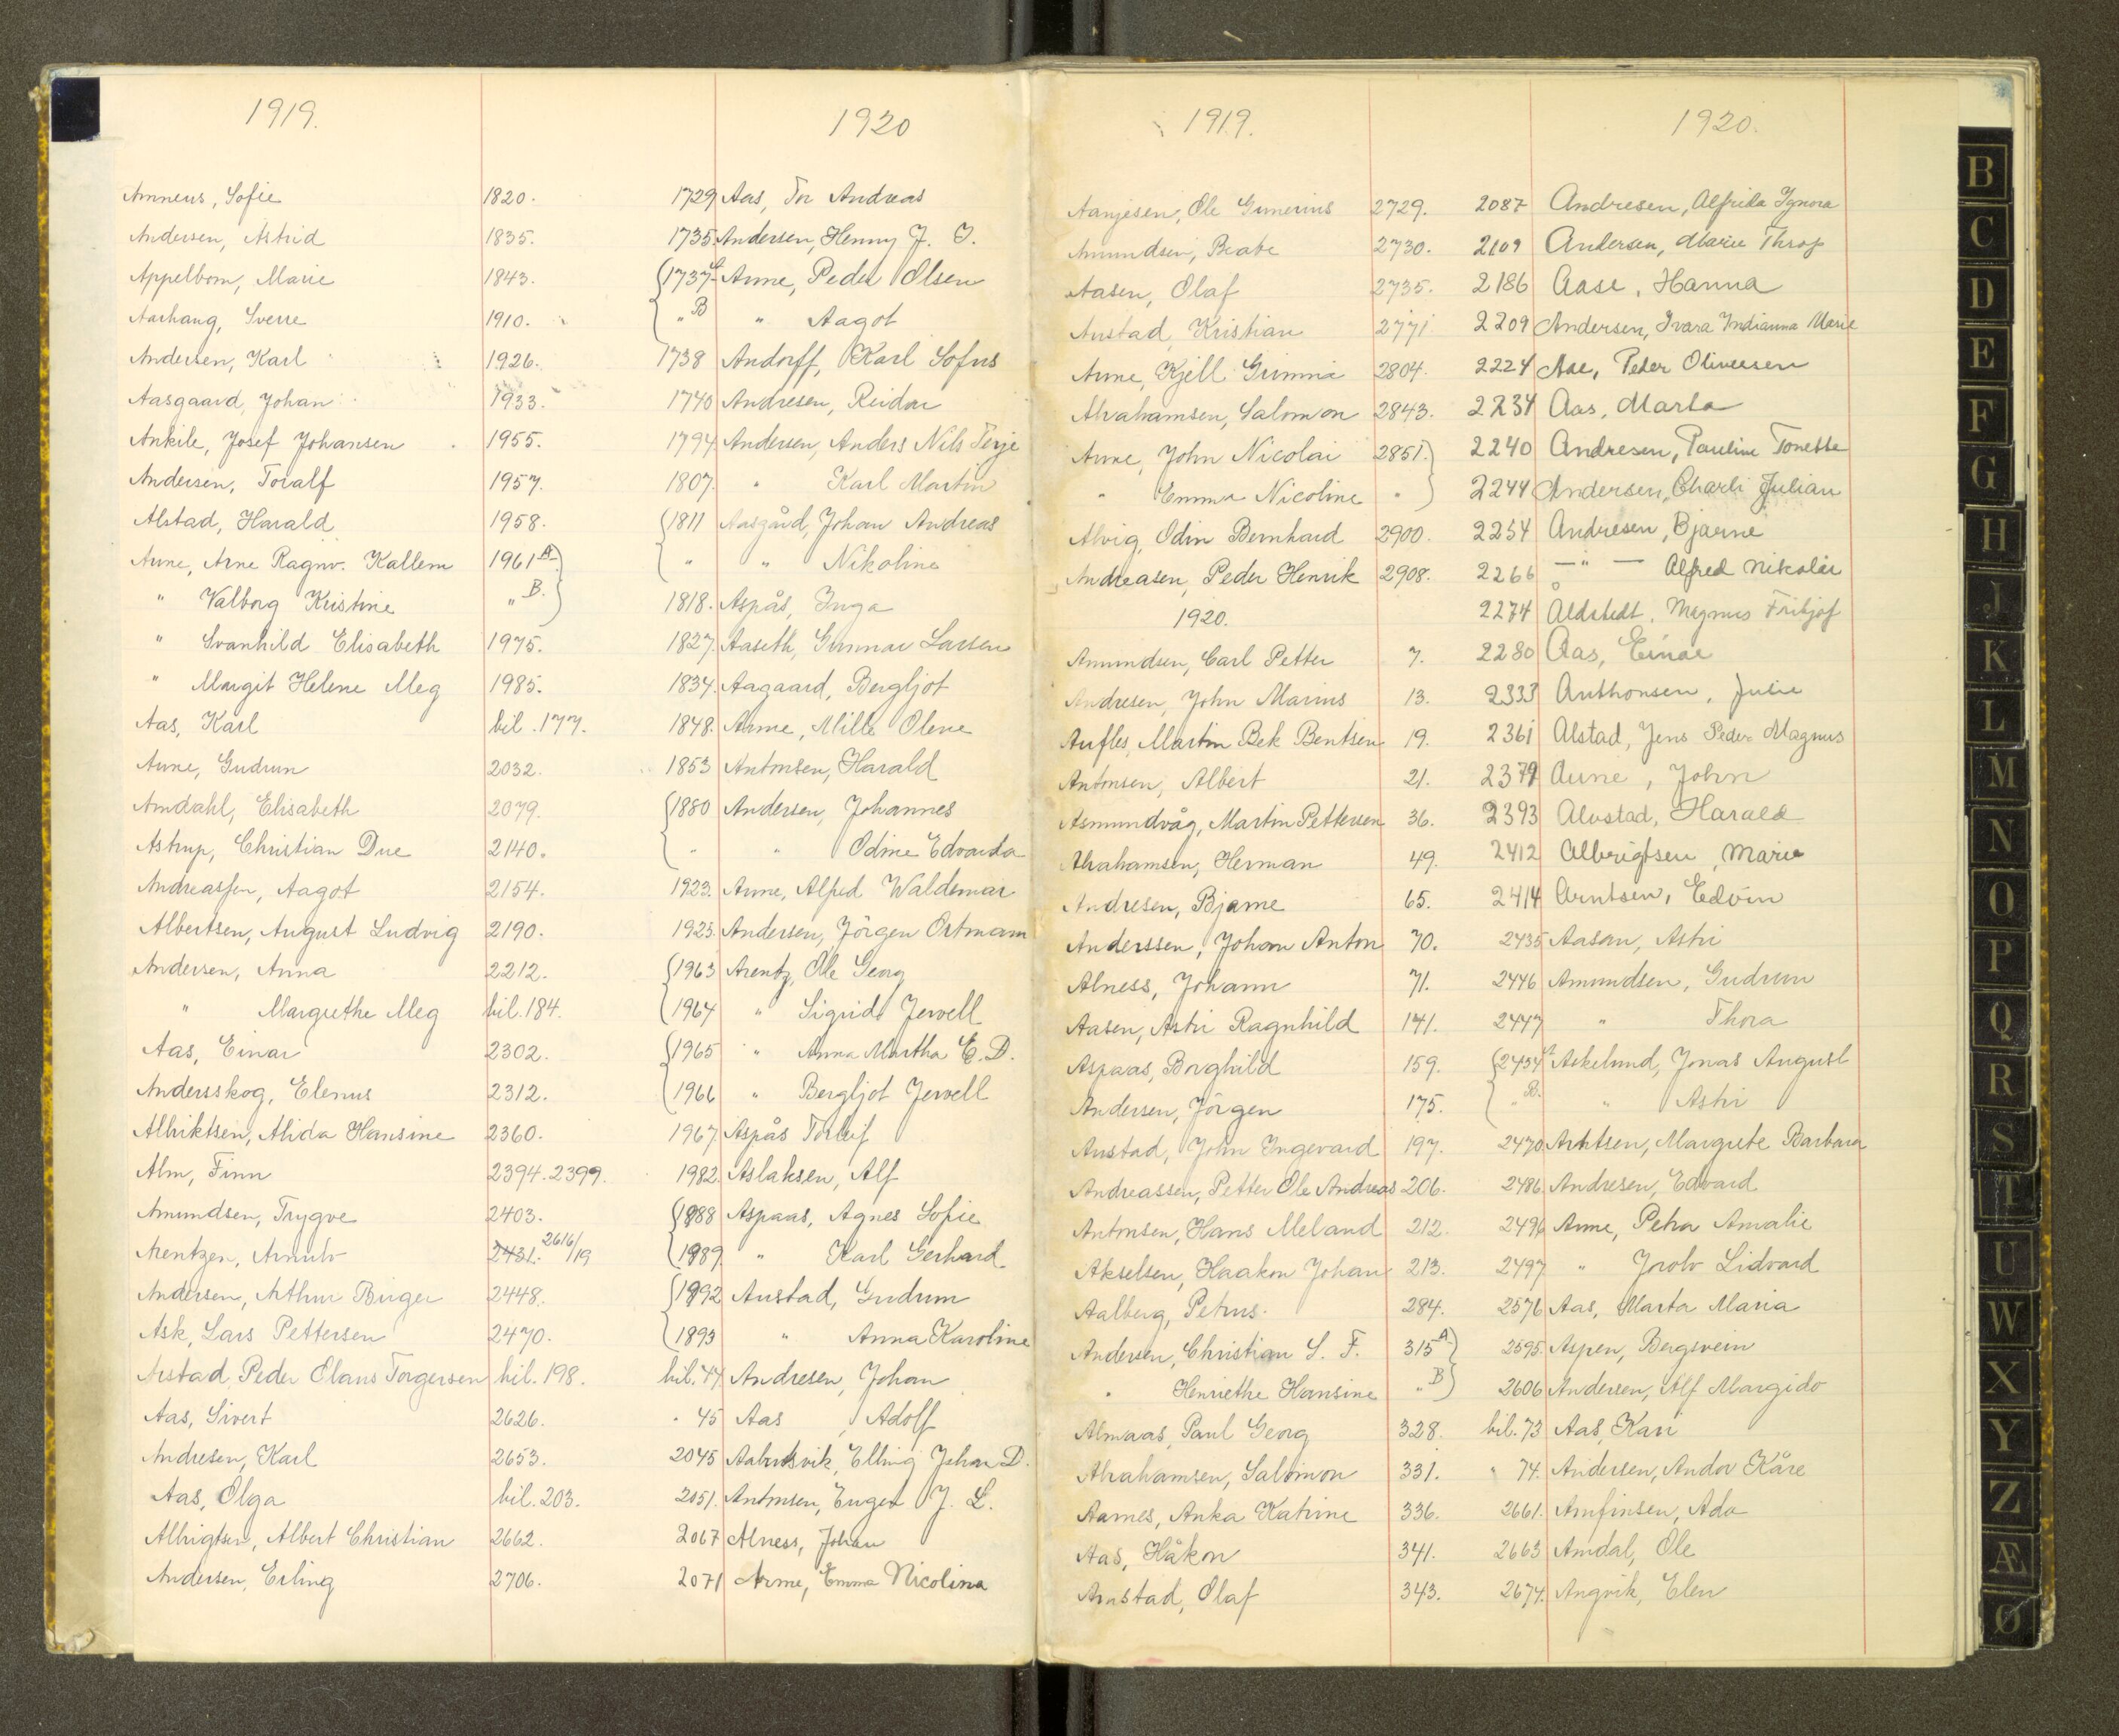 1919.
Amneus, Sofie 1820.
Andersen, Astrid 1835.
Appelbom, Marie 1843.
Aarhaug, Sverre 1910.
Andersen, Karl 1926.
Aasgaard, Johan 1933.
Ankile, Josef Johansen 1955.
Andersen, Toralf 1957.
Alstad, Harald 1958.
Aune, Arne Ragnv. Kallem 1961 A.
" Valborg Kristine " B.
" Svanhild Elisabeth 1975.
" Margit Helene Meg 1985.
Aas, Karl bil. 177.
Aune, Gudrun 2032.
Amdahl, Elisabeth 2079.
Astrup, Christian Due 2140.
Andreassen, Aagot 2154.
Albertsen, August Ludvig 2190.
Andersen, Anna 2212.
" Margrethe Meg bil. 184.
Aas, Einar 2302.
Andersskog, Elenus 2312.
Albriktsen, Alida Hansine 2360.
Alm, Finn 2394. 2399.
Amundsen, Trygve 2403.
Arentzen, Arnulv 2431. 2616/19
Andersen, Arthur Birger 2448.
Ask, Lars Pettersen 2470.
Arstad, Peder Elaus Torgersen bil. 198.
Aas, Sivert 2626.
Andresen, Karl 2653.
Aas, Olga bil. 203.
Albrigtsen, Albert Christian 2662.
Andersen, Erling 2706.
1920
1729 Aas, Tor Andreas
1735 Andersen, Henny J. J.
1737 A. Aune, Peder Olsen
" B " Aagot
1738 Andorff, Karl Sofus
1740 Andresen, Reidar
1794 Andersen, Anders Nils Terje
1807. " Karl Martin
1811 Aasgård, Johan Andreas
" " Nikoline
1818. Aspås, Inga
1827. Aaseth, Gunnar Larsen
1834. Aagaard, Bergljot
1848. Aune, Mille Olene
1853 Antonsen, Harald
1880 Andersen, Johannes
" " Odine Edvarda
1923. Aune, Alfred Waldemar
1925. Andersen, Jörgen Ortmann
1963 Arentz, Ole Georg
1964 " Sigrid Jervell
1965 " Anna Martha E. D.
1966 " Bergljot Jervell
1967. Aspås Torleif
1982. Aslaksen, Alf
1988 Aspaas, Agnes Sofie
1989. " Karl Gerhard
1992 Austad, Gudrum
1993 " Anna Karoline
bil. 44 Andresen, Johan
" 45 Aas, Adolf
2045 Elling Johan D.
2051. Antonsen, Eugen J. L.
2067 Alness, Johan
2071 Aune, Emma Nicolina
1919.
Aanjesen, Ole Gunerius 2729.
Amundsen, Beate 2730.
Aasen, Olaf 2735.
Austad, Kristian 2771
Aune, Kjell Gunnia 2804.
Abrahamsen, Salomon 2843.
Aune, John Nicolai 2851.
" Emma Nicoline "
Alvig, Odin Bernhard 2900.
Andreasen, Peder Henrik 2908.
1920.
Amundsen, Carl Petter 7.
Andresen, John Marius 13.
Aufles, Martin Bek Bentsen 19.
Antonsen, Albert 21.
Asmundvåg, Martin Pettersen 36.
Abrahamsen, Herman 49.
Andresen, Bjarne 65.
Anderssen, Johan Anton 70.
Alness, Johann 71.
Aasen, Astri Ragnhild 141.
Aspaas, Borghild 159.
Andersen, Jörgen 175.
Austad, John Ingevard 197.
Andreassen, Petter Ole Andreas 206.
Antonsen, Hans Meland 212.
Akselsen, Haakon Johan 213.
Aalberg, Petrus. 284.
Andersen, Christian S. F. 315 A
" Henriethe Hansine " B
Almaas, Paul Georg 328.
Abrahamsen, Salomon 331.
Aames, Anka Katrine 336.
Aas, Håkon 341.
Austad, Olaf 343.
1920.
2087 Andresen, Alfrida Ignora
2109 Andersen, Marie Throp
2186 Aase, Hanna
2209 Andersen, Ivara Indianna Marie
2224 Aae, Peder Oliversen
2234 Aas, Marta
2240 Andresen, Pauline Tonette
2244 Andersen, Charli Julian
2254 Andresen, Bjarne
2266 — " — Alfred Nikolai
2274 Aldstedt, Magnus Fritjof
2280 Aas, Einar
2333 Anthonsen, Julie
2361 Alstad, Jens Peder Magnus
2379 Aune, John
2393 Alvstad, Harald
2412 Albrigtsen, Marie
2414 Arntsen, Edvin
2435 Aasan, Astri
2446 Amundsen, Gudrun
2447 " Thora
2454 A Askelund, Jonas August
" B. " Astri
2470. Arntsen, Margrete Barbara
2486. Andresen, Edvard
2496 Aune, Petra Amalie
2497 " Jrolv Lidvard
2576 Aas, Marta Maria
2595. Aspen, Bergsvein
2606 Andersen, Alf Margido
bil. 73 Aas, Kari
" 74. Andersen, Andor Kåre
2661. Arnfinsen, Ada
2663 Amdal, Ole
2674. Angvik, Elen
B
C
D
E
F
G
H
J
K
L
M
N
O
P
Q
R
S
T
U
W
X
Y
Z
Æ
Ø